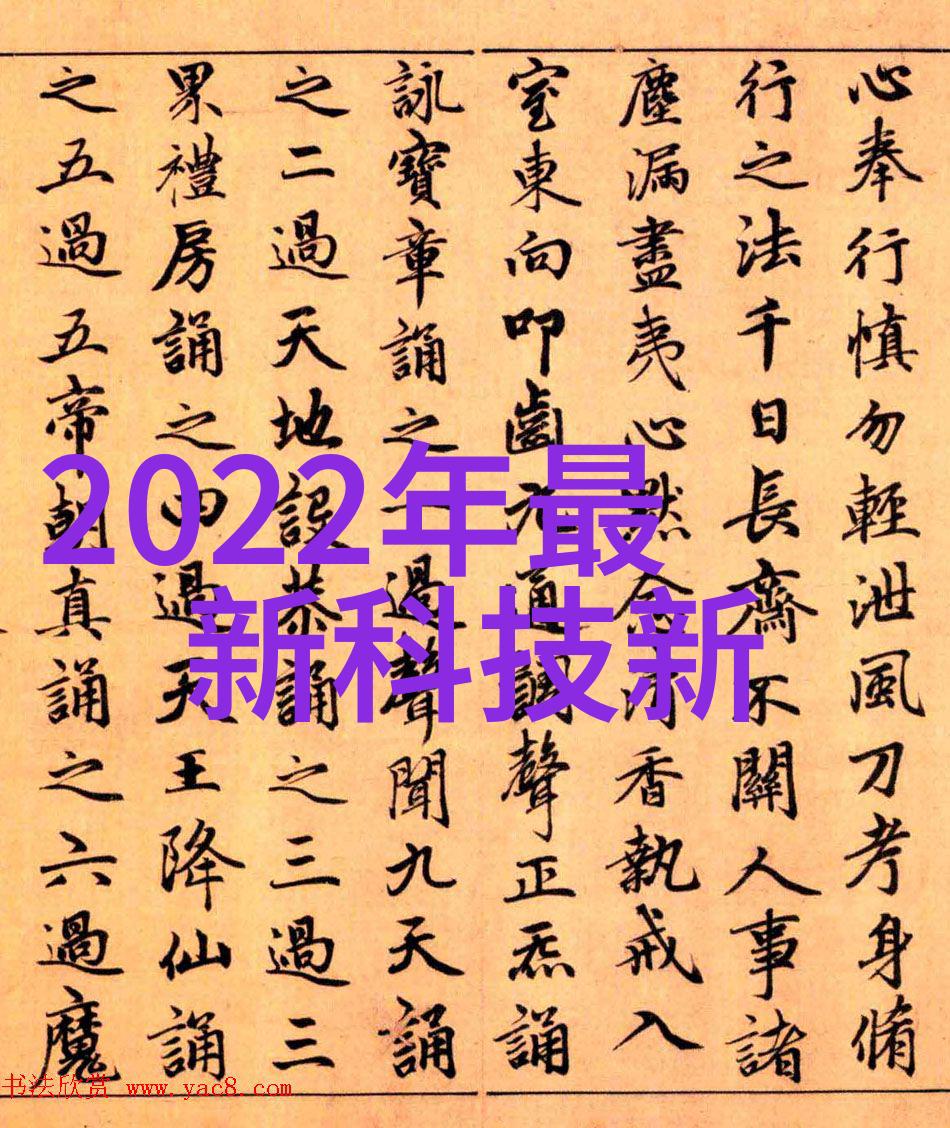 心奉行慎勿輕泄風刀考身脩
行之法千日長齋不關人事諸
塵漏盡夷心默念清香執戒入
室東向叩齒通聲正炁誦
詠寶章誦之一過聲聞九天誦
之二過天地設恭誦之三過三
界禮房誦之四過天王降仙誦
之五過五帝朝真誦之六過魔
2022年最
新科技新
书法欣赏 www.yac8.com